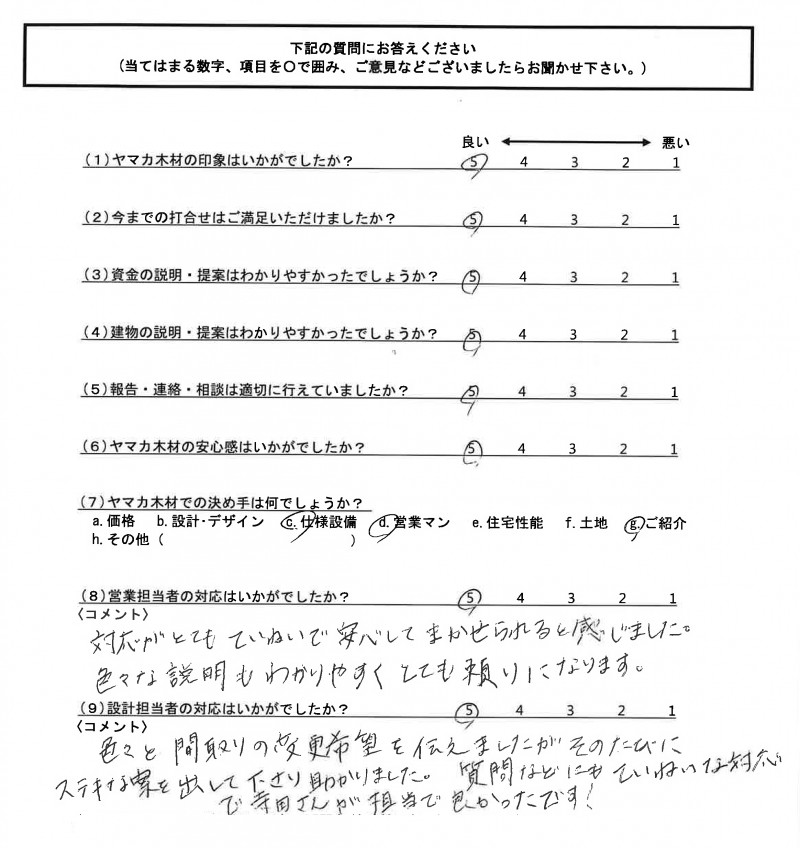 下記の質問にお答えください
(当てはまる数字、項目を〇で囲み、ご意見などございましたらお聞かせ下さい。)
良い 悪い
(1)ヤマカ木材の印象はいかがでしたか? 5 4 3 2 1
(2)今までの打合せはご満足いただけましたか? 5 4 3 2 1
(3)資金の説明・提案はわかりやすかったでしょうか? 5 4 3 2 1
(4)建物の説明・提案はわかりやすかったでしょうか? 5 4 3 2 1
(5)報告・連絡・相談は適切に行えていましたか? 5 4 3 2 1
(6)ヤマカ木材の安心感はいかがでしたか? 5 4 3 2 1
(7)ヤマカ木材での決め手は何でしょうか?
a.価格 b.設計・デザイン c.仕様設備 d.営業マン e.住宅性能 f.土地 g.ご紹介
h.その他( )
(8)営業担当者の対応はいかがでしたか? 5 4 3 2 1
〈コメント〉
対応がとてもていねいで安心してまかせられると感じました。
色々な説明もわかりやすくとても頼りになります。
(9)設計担当者の対応はいかがでしたか? 5 4 3 2 1
〈コメント〉
色々と間取りの変更希望を伝えましたがそのたびに
ステキな案を出して下さり助かりました。質問などにもていねいな対応
で寺田さんが担当で良かったです!